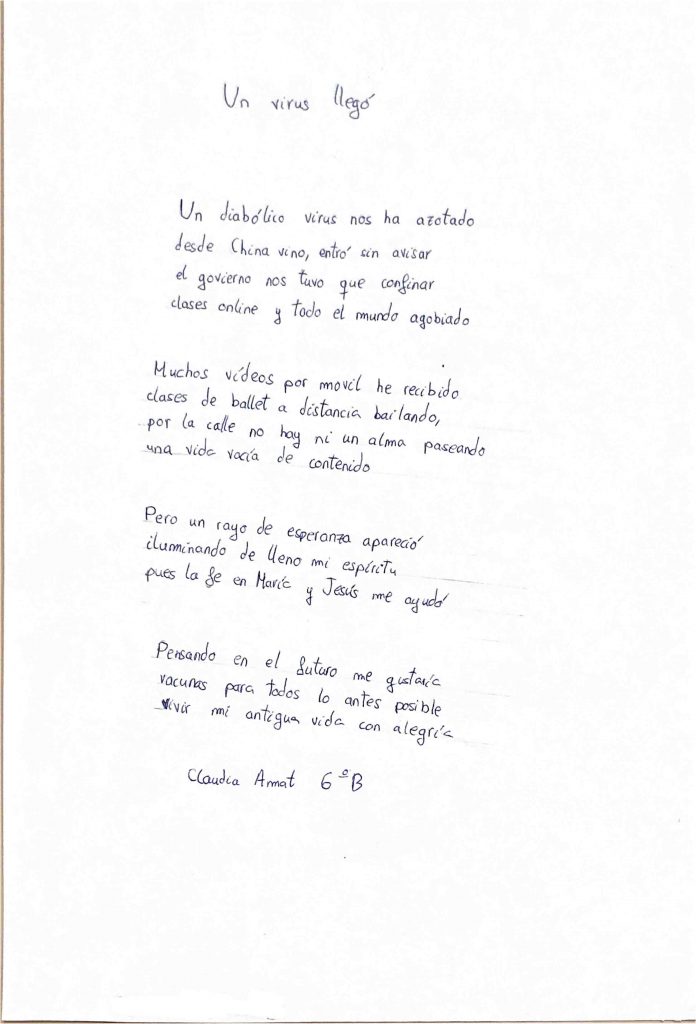 Un virus llegó
Un diabólico virus nos ha azotado
desde China vino, entró sin avisar
el govierno nos tuvo que confinar
clases online y todo el mundo agobiado
Muchos vídeos por movil he recibido
clases de ballet a distancia bailando,
por la calle no hay ni un alma paseando
una vida vacía de contenido
Pero un rayo de esperanza apareció
iluminando de lleno mi espíritu
pues la fe en María y Jesús me ayudó
Pensando en el futuro me gustaría
vacunas para todos lo antes posible
vivir mi antigua vida con alegría
Claudia Amat 6ºB